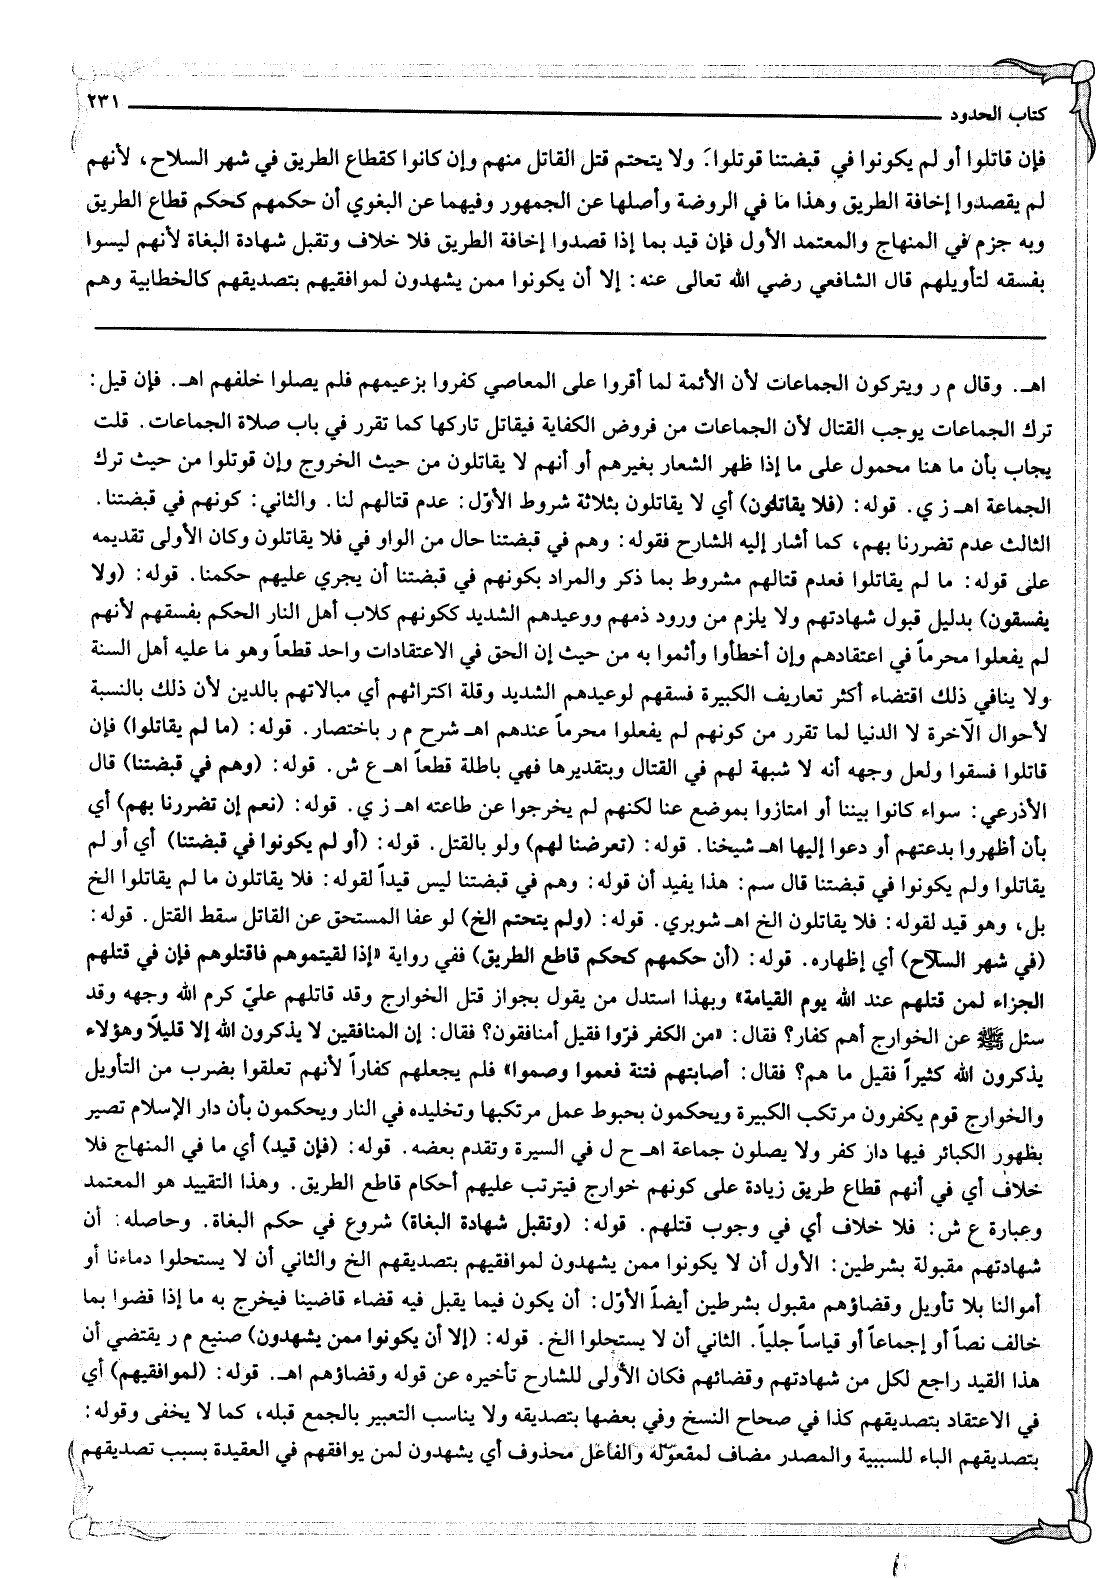 كتاب الحدود ٢٣١
فإن قاتلوا أو لم يكونوا في قبضتنا قوتلوا. ولا يتحتم قتل القاتل منهم وإن كانوا كقطاع الطريق في شهر السلاح، لأنهم
لم يقصدوا إخافة الطريق وهذا ما في الروضة وأصلها عن الجمهور وفيهما عن البغوي أن حكمهم كحكم قطاع الطريق
وبه جزم في المنهاج والمعتمد الأول فإن قيد بما إذا قصدوا إخافة الطريق فلا خلاف وتقبل شهادة البغاة لأنهم ليسوا
بفسقه لتأويلهم قال الشافعي رضي الله تعالى عنه: إلا أن يكونوا ممن يشهدون لموافقيهم بتصديقهم كالخطابية وهم
اهـ. وقال م ر ويتركون الجماعات لأن الأئمة لما أقروا على المعاصي كفروا بزعيمهم فلم يصلوا خلفهم اهـ. فإن قيل:
ترك الجماعات يوجب القتال لأن الجماعات من فروض الكفاية فيقاتل تاركها كما تقرر في باب صلاة الجماعات. قلت
يجاب بأن ما هنا محمول على ما إذا ظهر الشعار بغيرهم أو أنهم لا يقاتلون من حيث الخروج وإن قوتلوا من حيث ترك
الجماعة اهـ ز ي. قوله: (فلا يقاتلون) أي لا يقاتلون بثلاثة شروط الأوّل: عدم قتالهم لنا. والثاني: كونهم في قبضتنا.
الثالث عدم تضررنا بهم، كما أشار إليه الشارح فقوله: وهم في قبضتنا حال من الواو في فلا يقاتلون وكان الأولى تقديمه
على قوله: ما لم يقاتلوا فعدم قتالهم مشروط بما ذكر والمراد بكونهم في قبضتنا أن يجري عليهم حكمنا. قوله: (ولا
يفسقون) بدليل قبول شهادتهم ولا يلزم من ورود ذمهم ووعيدهم الشديد ككونهم كلاب أهل النار الحكم بفسقهم لأنهم
لم يفعلوا محرماً في اعتقادهم وإن أخطأوا وأثموا به من حيث إن الحق في الاعتقادات واحد قطعاً وهو ما عليه أهل السنة
ولا ينافي ذلك اقتضاء أكثر تعاريف الكبيرة فسقهم لوعيدهم الشديد وقلة اكتراثهم أي مبالاتهم بالدين لأن ذلك بالنسبة
لأحوال الآخرة لا الدنيا لما تقرر من كونهم لم يفعلوا محرماً عندهم اهـ شرح م ر باختصار. قوله: (ما لم يقاتلوا) فإن
قاتلوا فسقوا ولعل وجهه أنه لا شبهة لهم في القتال وبتقديرها فهي باطلة قطعاً اهـ ع ش. قوله: (وهم في قبضتنا) قال
الأذرعي: سواء كانوا بيننا أو امتازوا بموضع عنا لكنهم لم يخرجوا عن طاعته اهـ ز ي. قوله: (نعم إن تضررنا بهم) أي
بأن أظهروا بدعتهم أو دعوا إليها اهـ شيخنا. قوله: (تعرضنا لهم) ولو بالقتل. قوله: (أو لم يكونوا في قبضتنا) أي أو لم
يقاتلوا ولم يكونوا في قبضتنا قال سم: هذا يفيد أن قوله: وهم في قبضتنا ليس قيداً لقوله: فلا يقاتلون ما لم يقاتلوا الخ
بل، وهو قيد لقوله: فلا يقاتلون الخ اهـ شوبري. قوله: (ولم يتحتم الخ) لو عفا المستحق عن القاتل سقط القتل. قوله:
(في شهر السلاح) أي إظهاره. قوله: (أن حكمهم كحكم قاطع الطريق) ففي رواية «إذا لقيتموهم فاقتلوهم فإن في قتلهم
الجزاء لمن قتلهم عند الله يوم القيامة» وبهذا استدل من يقول بجواز قتل الخوارج وقد قاتلهم عليّ كرم الله وجهه وقد
سئل ﷺ عن الخوارج أهم كفار؟ فقال: «من الكفر فرّوا فقيل أمنافقون؟ فقال: إن المنافقين لا يذكرون الله إلا قليلاً وهؤلاء
يذكرون الله كثيراً فقيل ما هم؟ فقال: أصابتهم فتنة فعموا وصموا» فلم يجعلهم كفاراً لأنهم تعلقوا بضرب من التأويل
والخوارج قوم يكفرون مرتكب الكبيرة ويحكمون بحبوط عمل مرتكبها وتخليده في النار ويحكمون بأن دار الإسلام تصير
بظهور الكبائر فيها دار كفر ولا يصلون جماعة اهـ ح ل في السيرة وتقدم بعضه. قوله: (فإن قيد) أي ما في المنهاج فلا
خلاف أي في أنهم قطاع طريق زيادة على كونهم خوارج فيترتب عليهم أحكام قاطع الطريق. وهذا التقييد هو المعتمد
وعبارة ع ش: فلا خلاف أي في وجوب قتلهم. قوله: (وتقبل شهادة البغاة) شروع في حكم البغاة. وحاصله: أن
شهادتهم مقبولة بشرطين: الأول أن لا يكونوا ممن يشهدون لموافقيهم بتصديقهم الخ والثاني أن لا يستحلوا دماءنا أو
أموالنا بلا تأويل وقضاؤهم مقبول بشرطين أيضاً الأوّل: أن يكون فيما يقبل فيه قضاء قاضينا فيخرج به ما إذا قضوا بما
خالف نصاً أو إجماعاً أو قياساً جلياً. الثاني أن لا يستحلوا الخ. قوله: (إلا أن يكونوا ممن يشهدون) صنيع م ر يقتضي أن
هذا القيد راجع لكل من شهادتهم وقضائهم فكان الأولى للشارح تأخيره عن قوله وقضاؤهم اهـ. قوله: (لموافقيهم) أي
في الاعتقاد بتصديقهم كذا في صحاح النسخ وفي بعضها بتصديقه ولا يناسب التعبير بالجمع قبله، كما لا يخفى وقوله:
بتصديقهم الباء للسببية والمصدر مضاف لمفعوله والفاعل محذوف أي يشهدون لمن يوافقهم في العقيدة بسبب تصديقهم